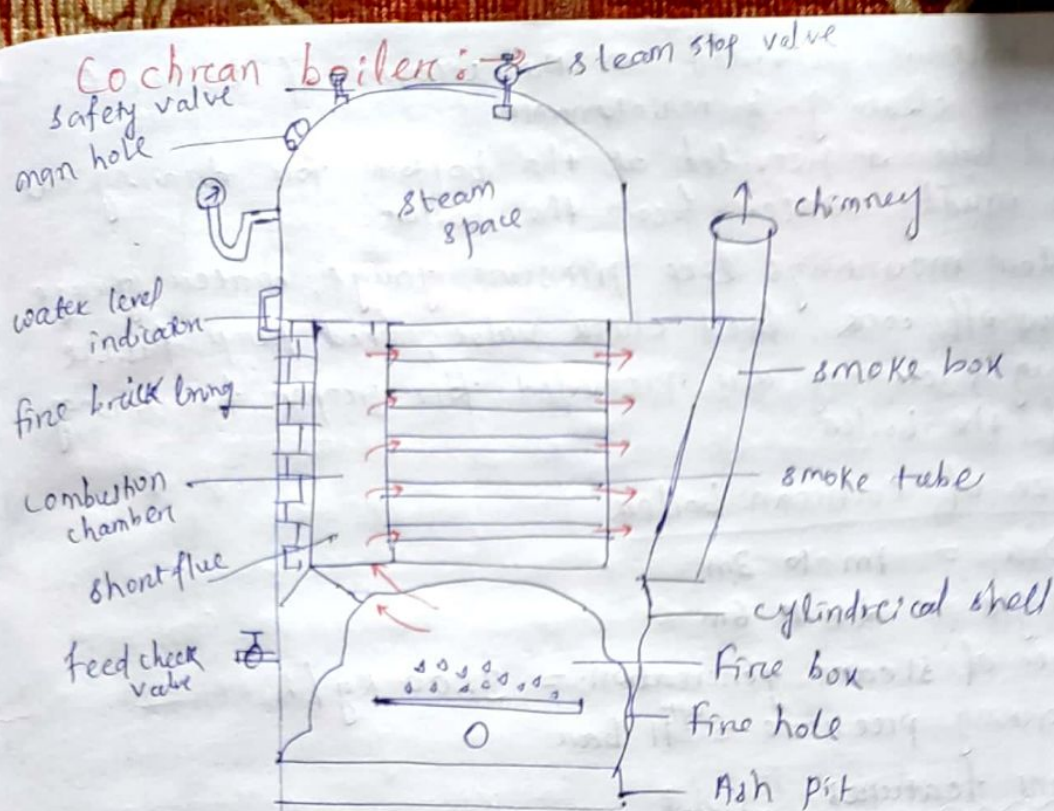 Cochran boiler:
steam stop valve
safety valve
man hole
steam
space
chimney
water level
indicator
fire brick lining
smoke box
combustion
chamber
smoke tube
short flue
cylindrical shell
feed check
valve
Fire box
fire hole
Ash pit